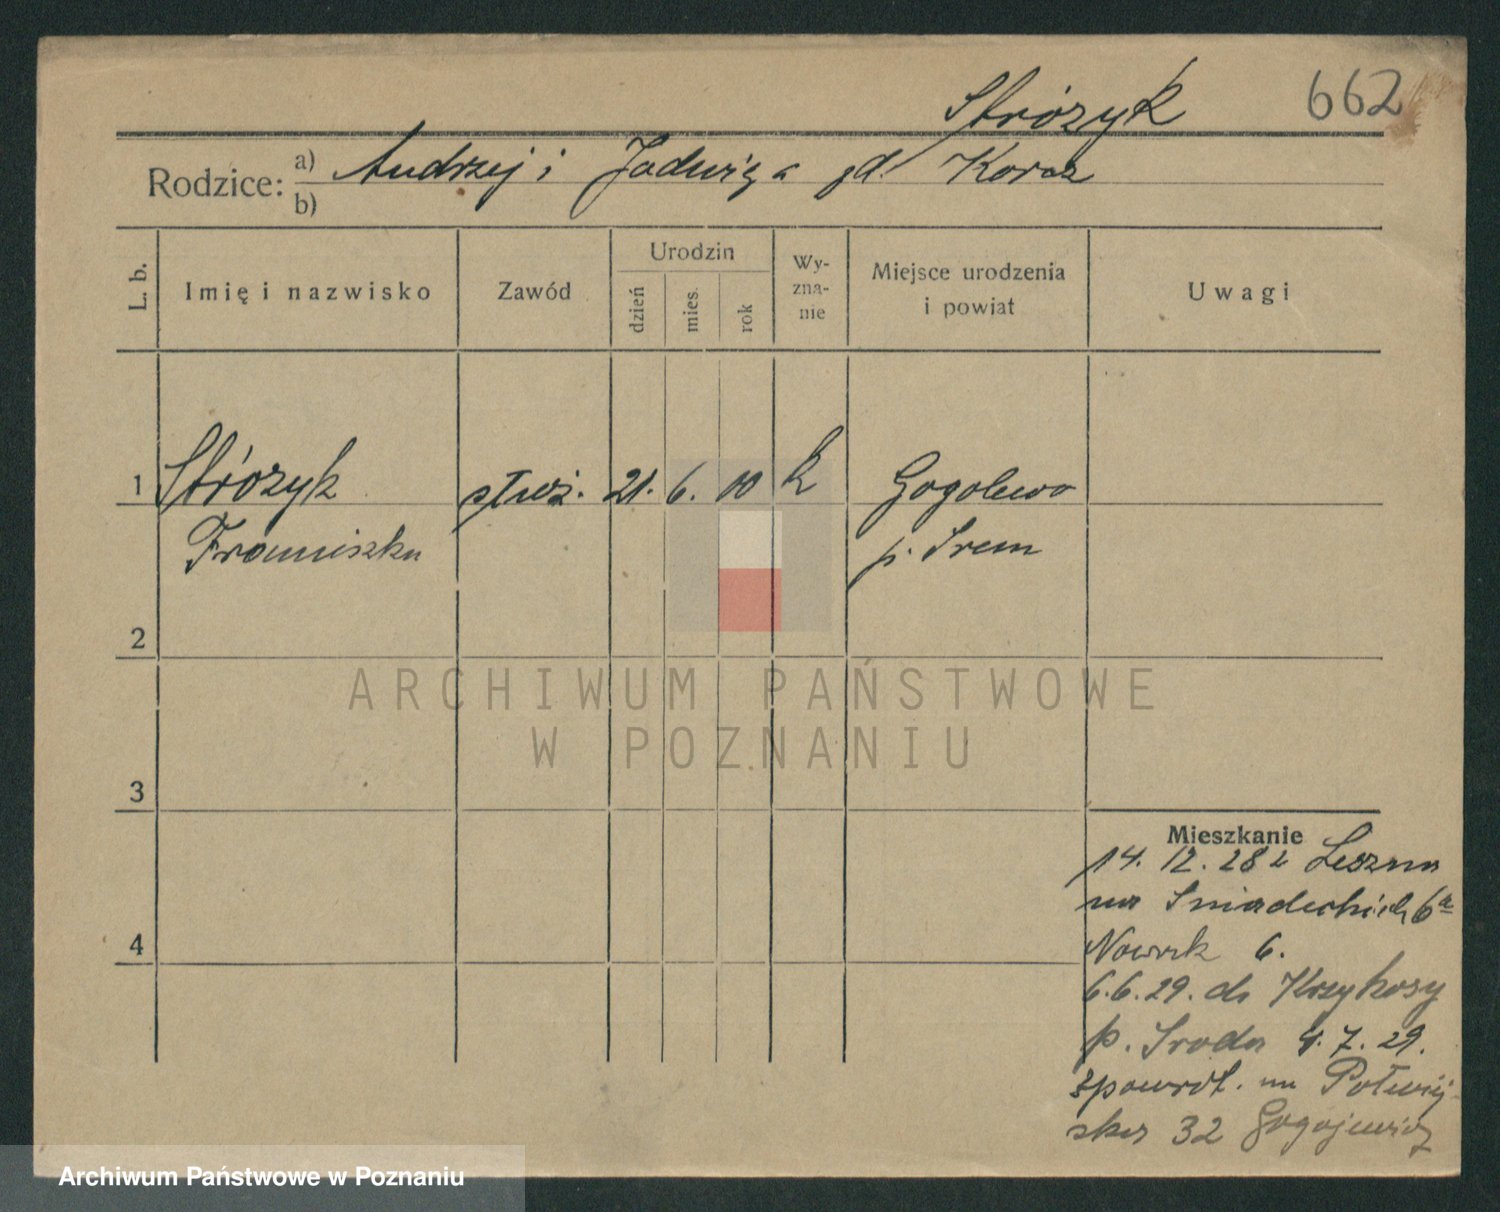 662
Stróżyk
Rodzice: a) Andrzej i Jadwiga zd. Koraz
b)
L. b. Imię i nazwisko Zawód Urodzin dzień mies. rok Wyznanie Miejsce urodzenia i powiat Uwagi
1 Stróżyk służ. 21. 6. 10 k Gogolewo
Franciszka p. Śrem
2
ARCHIWUM PAŃSTWOWE
W POZNANIU
3
Mieszkanie
14. 12. 28 z Leszna
na Śniadeckich 6a
Nowak 6.
4
6.6.29. do Krzykosy
p. Środa 4. 7. 29.
zpowrót. na Półwiej
ska 32 Gogojewicz
Archiwum Państwowe w Poznaniu